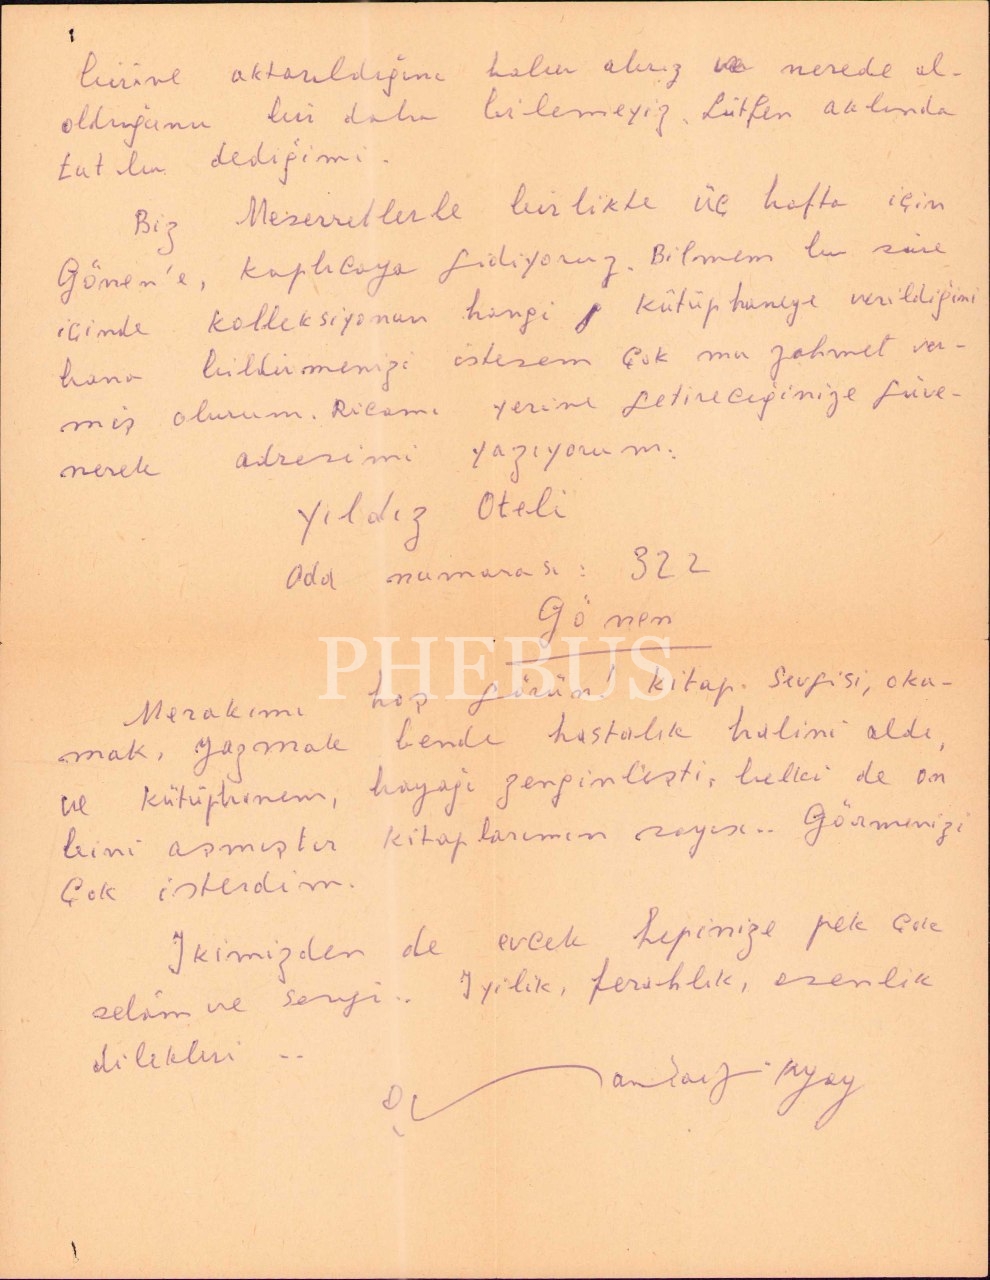 birine aktarıldığını haber alırız ve nerede ol-
olduğunu bir daha bilemeyiz. Lütfen aklında
tut bu dediğimi.
Biz Meserretlerle birlikte üç hafta için
Gönen'e, kaplıcaya gidiyoruz. Bilmem bu süre
içinde kolleksiyonun hangi kütüphaneye verildiğini
bana bildirmenizi istesem çok mu zahmet ver-
miş olurum. Ricamı yerine getireceğinize güve-
nerek adresimi yazıyorum.
Yıldız Oteli
Oda numarası: 322
Gönen
PHEBUS
Merakımı hoş görün! Kitap sevgisi, oku-
mak, yazmak bende hastalık halini aldı,
ve kütüphanem, bayağı zenginleşti, belki de on
bini aşmıştır kitaplarımın sayısı.. Görmenizi
çok isterdim.
İkimizden de evcek hepinize pek çok
selâm ve sevgi.. İyilik, ferahlık, esenlik
dilekleri ..